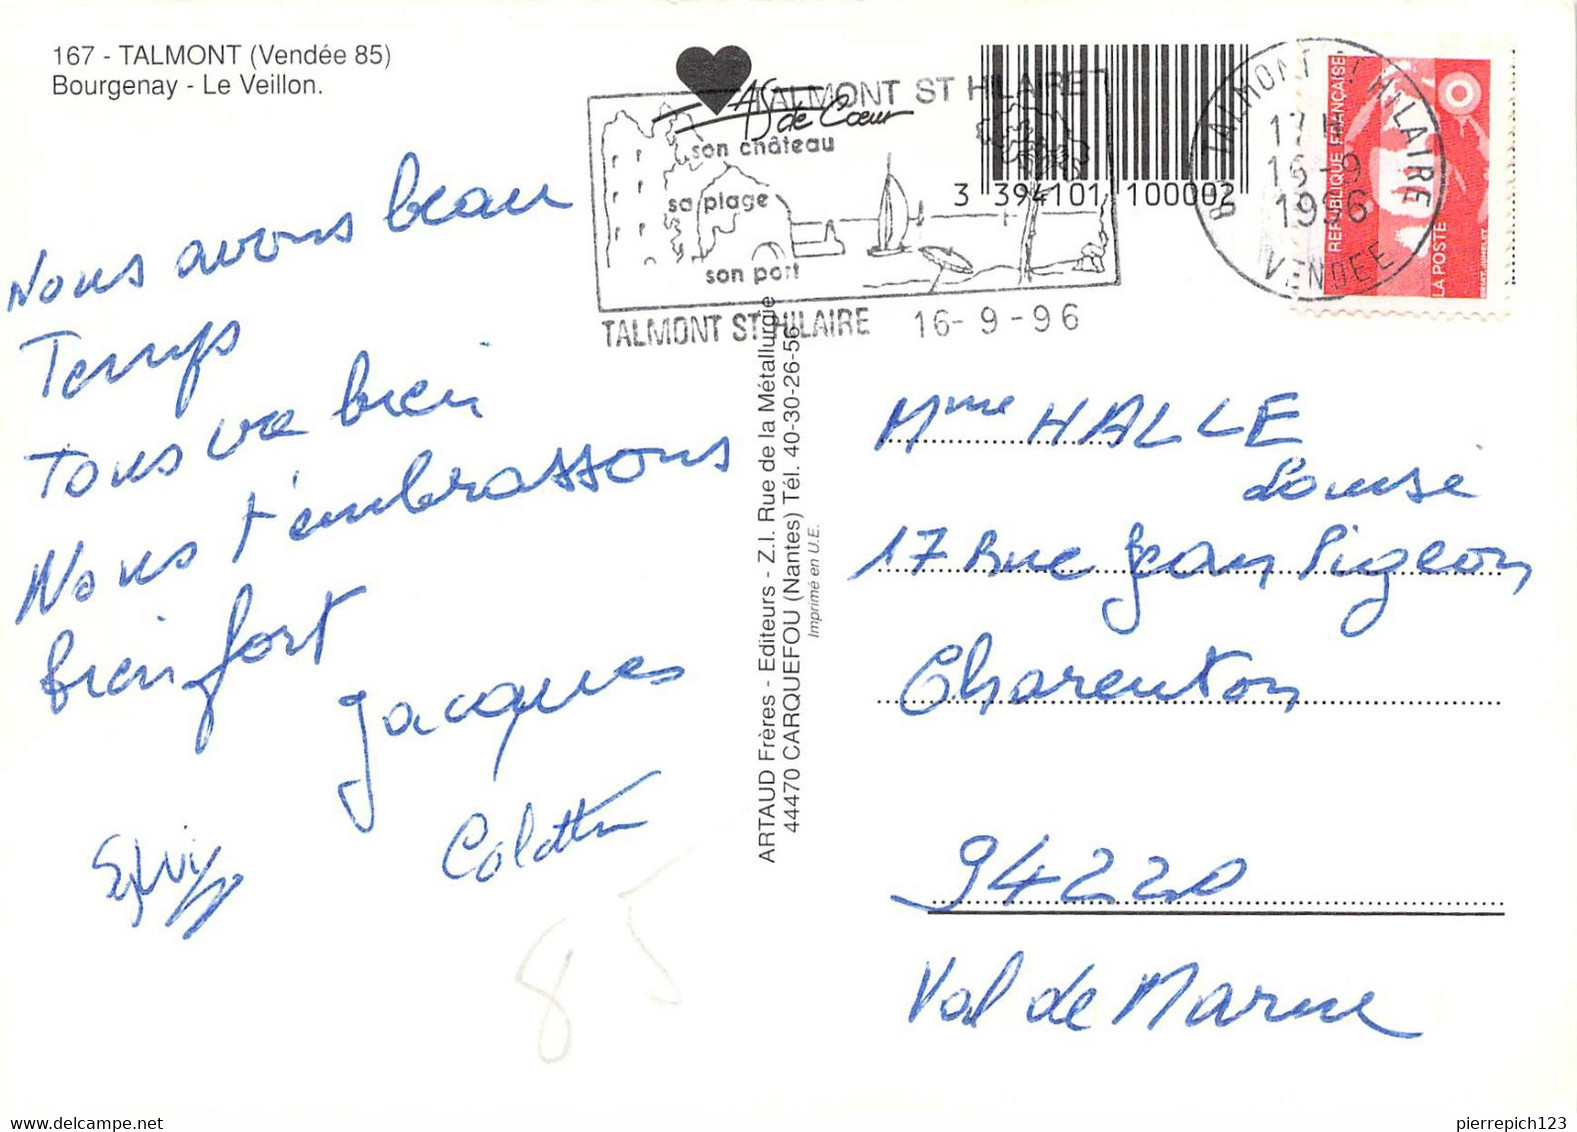 167 - TALMONT (Vendée 85)
Bourgenay - Le Veillon.
As de Cœur
TALMONT ST HILAIRE
son château
sa plage
son port
TALMONT ST HILAIRE 16-9-96
3 394101 100002
TALMONT ST HILAIRE
17H
16-9
1996
VENDEE
REPUBLIQUE FRANÇAISE
LA POSTE
Nous avons beau
Temps
Tous va bien
Nous t'embrassons
bien fort
Jacques
Colette
85
ARTAUD Frères - Editeurs - Z.I. Rue de la Métallurgie
44470 CARQUEFOU (Nantes) Tél. 40-30-26-56
Imprimé en U.E.
Mme HALLE
Louise
17 Rue Jean Pigeon
Charenton
94220
Val de Marne
delcampe.net
pierrepich123